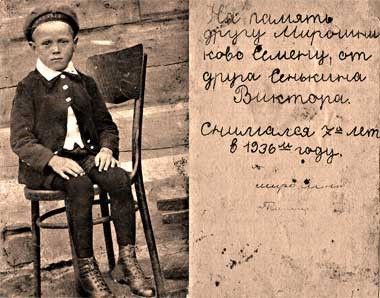 На память
другу Мирошни
ково Семену, от
друга Сенькина
Виктора.
Снимался 7ми лет
в 1936 м году.